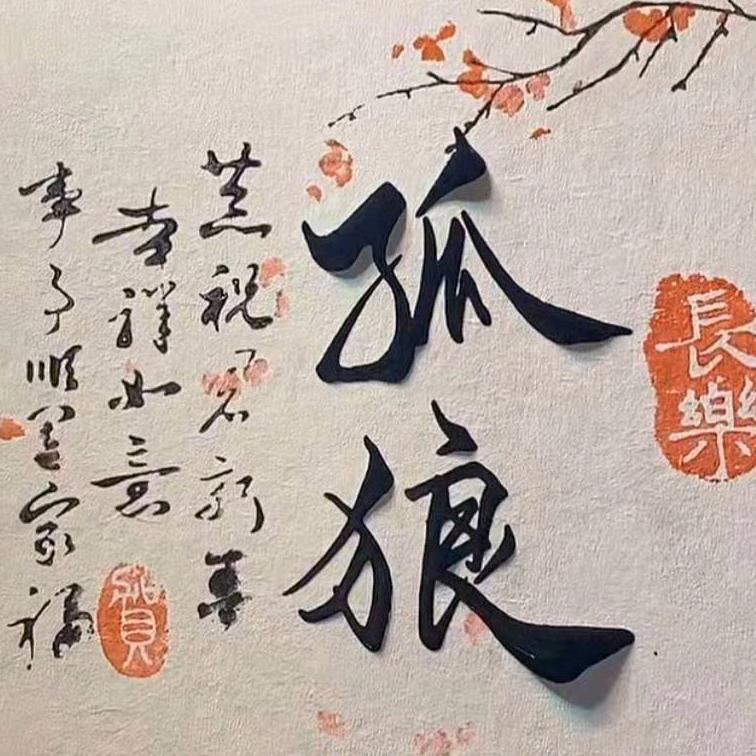 長樂
孤狼
恭祝新
吉祥如意
事事順家福
賀